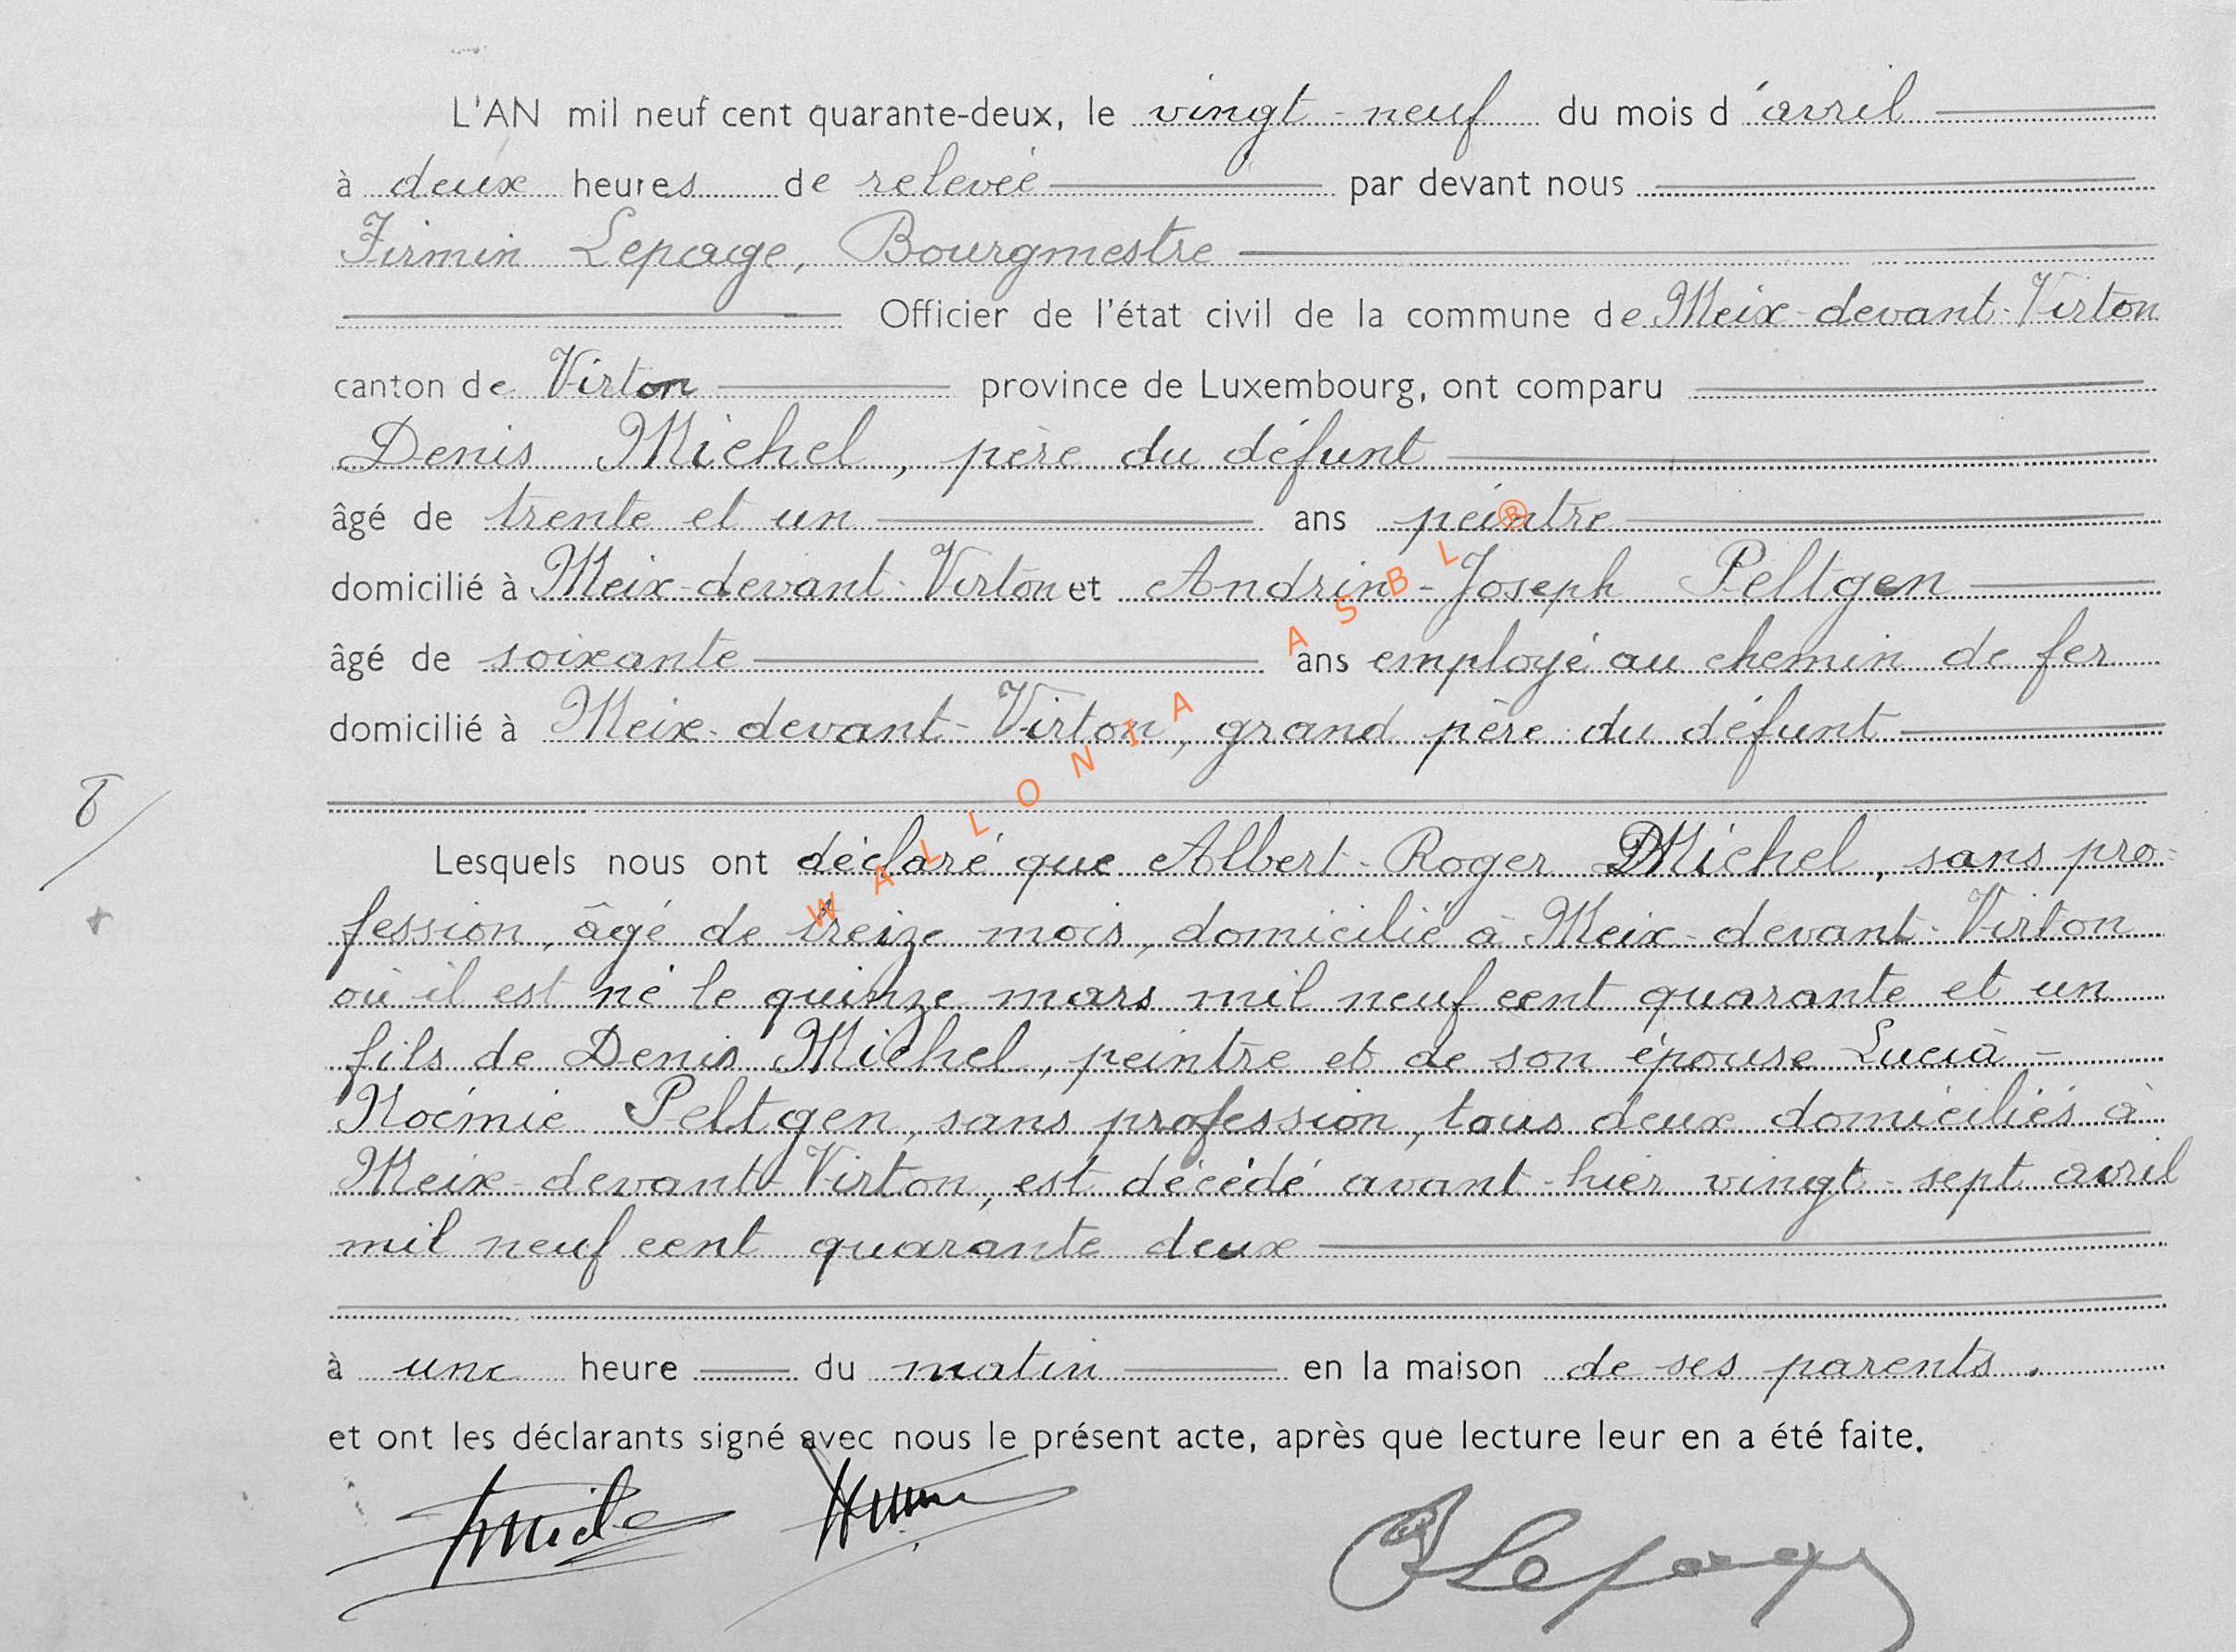 L'AN mil neuf cent quarante-deux, le vingt-neuf du mois d'avril
à deux heures de relevée par devant nous
Firmin Lepage, Bourgmestre
Officier de l'état civil de la commune de Meix-devant-Virton
canton de Virton province de Luxembourg, ont comparu
Denis Michel, père du défunt
âgé de trente et un ans peintre
domicilié à Meix-devant-Virton et Andrin-Joseph Peltgen
âgé de soixante ans employé au chemin de fer
domicilié à Meix-devant-Virton, grand père du défunt
Lesquels nous ont déclaré que Albert-Roger Michel, sans pro-
fession, âgé de treize mois, domicilié à Meix-devant-Virton
où il est né le quinze mars mil neuf cent quarante et un
fils de Denis Michel, peintre et de son épouse Lucia-
Noémie Peltgen, sans profession, tous deux domiciliés à
Meix-devant-Virton, est décédé avant-hier vingt-sept avril
mil neuf cent quarante deux
à une heure du matin en la maison de ses parents.
et ont les déclarants signé avec nous le présent acte, après que lecture leur en a été faite.
Lepage
WALLONIA ASBL ®